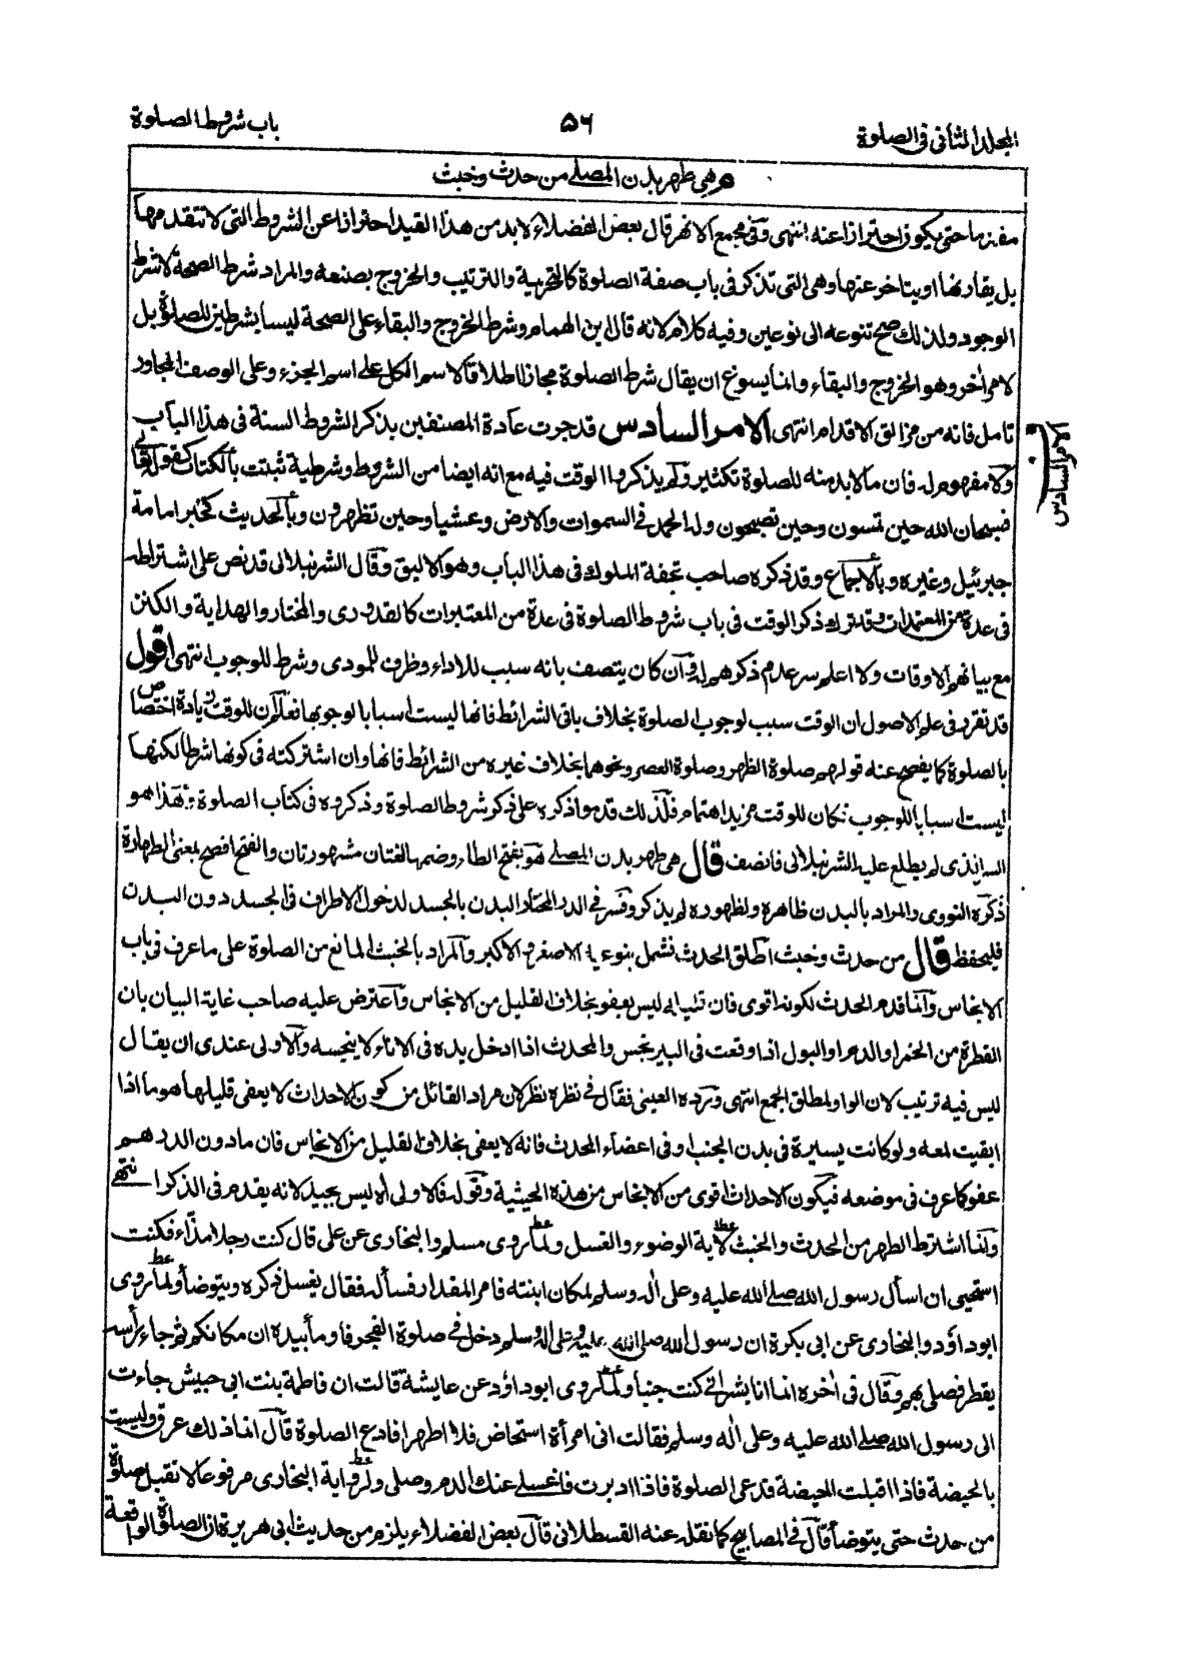 المجلد الثاني في الصلوة
٥٦
باب شروط الصلوة
هي طهر بدن المصلى من حدث وخبث
مفيزها حتى يكون احترازا عنه انتهى وفى مجمع الانهر قال بعض الفضلاء لابد من هذا القيد احترازا عن الشروط التى لا تتقدمها
بل يقارنها او يتاخر عنها وهى التى تذكر فى باب صفة الصلوة كالتحريمة والترتيب والخروج بصنعه والمراد شرط الصحة لا شرط
الوجود ولذلك صح تنوعه الى نوعين وفيه كلام لانه قال ابن الهمام وشرط الخروج والبقاء على الصحة ليسا بشرطين للصلوة بل
لامر أخر وهو الخروج والبقاء وانما يسوغ ان يقال شرط الصلوة مجازا اطلاقا لاسم الكل على اسم الجزء وعلى الوصف المجاور
تامل فانه من مزالق الاقدام انتهى الامر السادس قد جرت عادة المصنفين بذكر الشروط الستة فى هذا الباب
الامر السادس
ولا مفهوم له فان مالابد منه للصلوة تكثير ولم يذكروا الوقت فيه مع انه ايضا من الشروط وشرطية ثبتت بالكتاب كقوله تعا
فسبحان الله حين تمسون وحين تصبحون وله الحمد فى السموات والارض وعشيا وحين تظهرون وبالحديث كخبر امامة
جبرئيل وغيره وبالاجماع وقد ذكره صاحب تحفة الملوك فى هذا الباب وهو الاليق وقال الشرنبلالى قد نص على اشتراطه
فى عدة من المعتمدات وقد ترك ذكر الوقت فى باب شروط الصلوة فى عدة من المعتبرات كالقدورى والمختار والهداية والكنز
مع بيانهم الاوقات ولا اعلم سر عدم ذكرهم له وان كان يتصف بانه سبب للاداء وظرف للمودى وشرط للوجوب انتهى اقول
قد تقرر فى علم الاصول ان الوقت سبب لوجوب الصلوة بخلاف باقى الشرائط فانها ليست اسبابا لوجوبها فعلم ان للوقت زيادة اختصاص
بالصلوة كما يفصح عنه قولهم صلوة الظهر وصلوة العصر ونحوها بخلاف غيره من الشرائط فانها وان اشتركته فى كونها شرطا لكنها
ليست اسبابا للوجوب فكان للوقت مزيد اهتمام فلذلك قدموا ذكره على ذكر شروط الصلوة وذكروه فى كتاب الصلوة فهذا هو
السر الذى لم يطلع عليه الشرنبلالى فانصف قال هى طهر بدن المصلى هو بفتح الطاء وضمها لغتان مشهورتان والفتح افصح بمعنى الطهارة
ذكره النووى والمراد بالبدن ظاهره ولظهوره لم يذكر وفسر فى الدر المختار البدن بالجسد لدخول الاطراف فى الجسد دون البدن
فليحفظ قال من حدث وخبث اطلق الحدث فشمل بنوعيه الاصغر والاكبر والمراد بالخبث المانع من الصلوة على ما عرف فى باب
الانجاس وانما قدم الحدث لكونه اقوى فان قليله ليس بعفو بخلاف القليل من الانجاس واعترض عليه صاحب غاية البيان بان
القطرة من الخمر او الدم او البول اذا وقعت فى البير تنجس والمحدث اذا ادخل يده فى الاناء لا ينجسه والاولى عندى ان يقال
ليس فيه ترتيب لان الواو لمطلق الجمع انتهى ورده العينى فقال فى نظره نظر لان مراد القائل من كون الاحداث لا يعفى قليلها هو ما اذا
ابقيت لمعه ولو كانت يسيرة فى بدن الجنب او فى اعضاء المحدث فانه لا يعفى بخلاف القليل من الانجاس فان مادون الدرهم
عفو كما عرف فى موضعه فيكون الاحداث اقوى من الانجاس من هذه الحيثية وقوله فالاولى أه ليس بجيد لانه يقدم فى الذكر انتهى
ولنا اشترط الطهر من الحدث والخبث لأية الوضوء والغسل ولما روى مسلم والبخارى عن على قال كنت رجلا مذّاء فكنت
استحيى ان اسأل رسول الله صلى الله عليه وعلى اله وسلم لمكان ابنته فامر المقداد فسأله فقال يغسل ذكره ويتوضأ ولما روى
ابوداؤد والبخارى عن ابى بكرة ان رسول الله صلى الله عليه وعلى اله وسلم دخل فى صلوة الفجر فاومأ بيده ان مكانكم ثم جاء رأسه
يقطر فصلى بهم وقال فى أخره انما انا بشر انى كنت جنبا ولما روى ابوداؤد عن عايشة قالت ان فاطمة بنت ابى حبيش جاءت
الى رسول الله صلى الله عليه وعلى اله وسلم فقالت انى امرأة استحاض فلا اطهر افادع الصلوة قال انما ذلك عرق وليست
بالحيضة فاذا اقبلت الحيضة فدعى الصلوة فاذا ادبرت فاغسلى عنك الدم وصلى ولرواية البخارى مرفوعا لا تقبل صلوة
من حدث حتى يتوضأ قال فى المصابيح كما نقله عنه القسطلانى قال بعض الفضلاء يلزم من حديث ابى هريرة ان الصلوة الواقعة